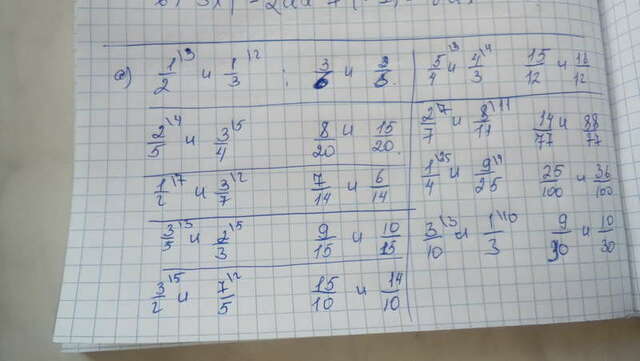 а) 1/2 \3 и 1/3 \2 ; 3/6 и 2/6.
2/5 \4 и 3/4 \5 8/20 и 15/20.
1/2 \7 и 3/7 \2 7/14 и 6/14
3/5 \3 и 2/3 \5 9/15 и 10/15
3/2 \5 и 7/5 \2 15/10 и 14/10
5/4 \3 и 4/3 \4 15/12 и 16/12
2/7 и 8/11 14/77 и 88/77
1/4 \25 и 9/25 \4 25/100 и 36/100
3/10 \3 и 1/3 \10 9/30 и 10/30